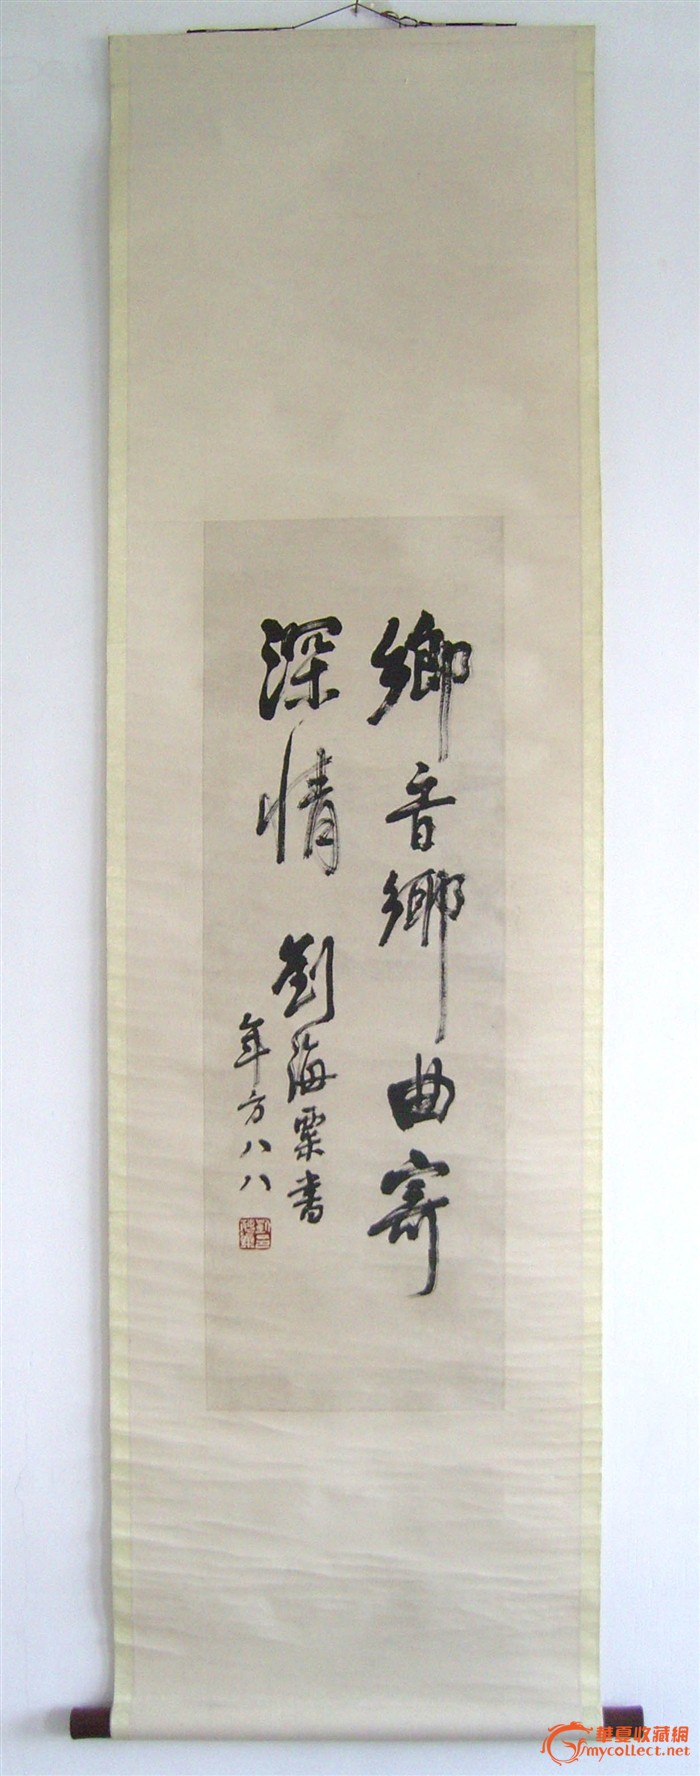 鄉音鄉曲寄
深情
劉海粟書
年方八八
華夏收藏網
mycollect.net